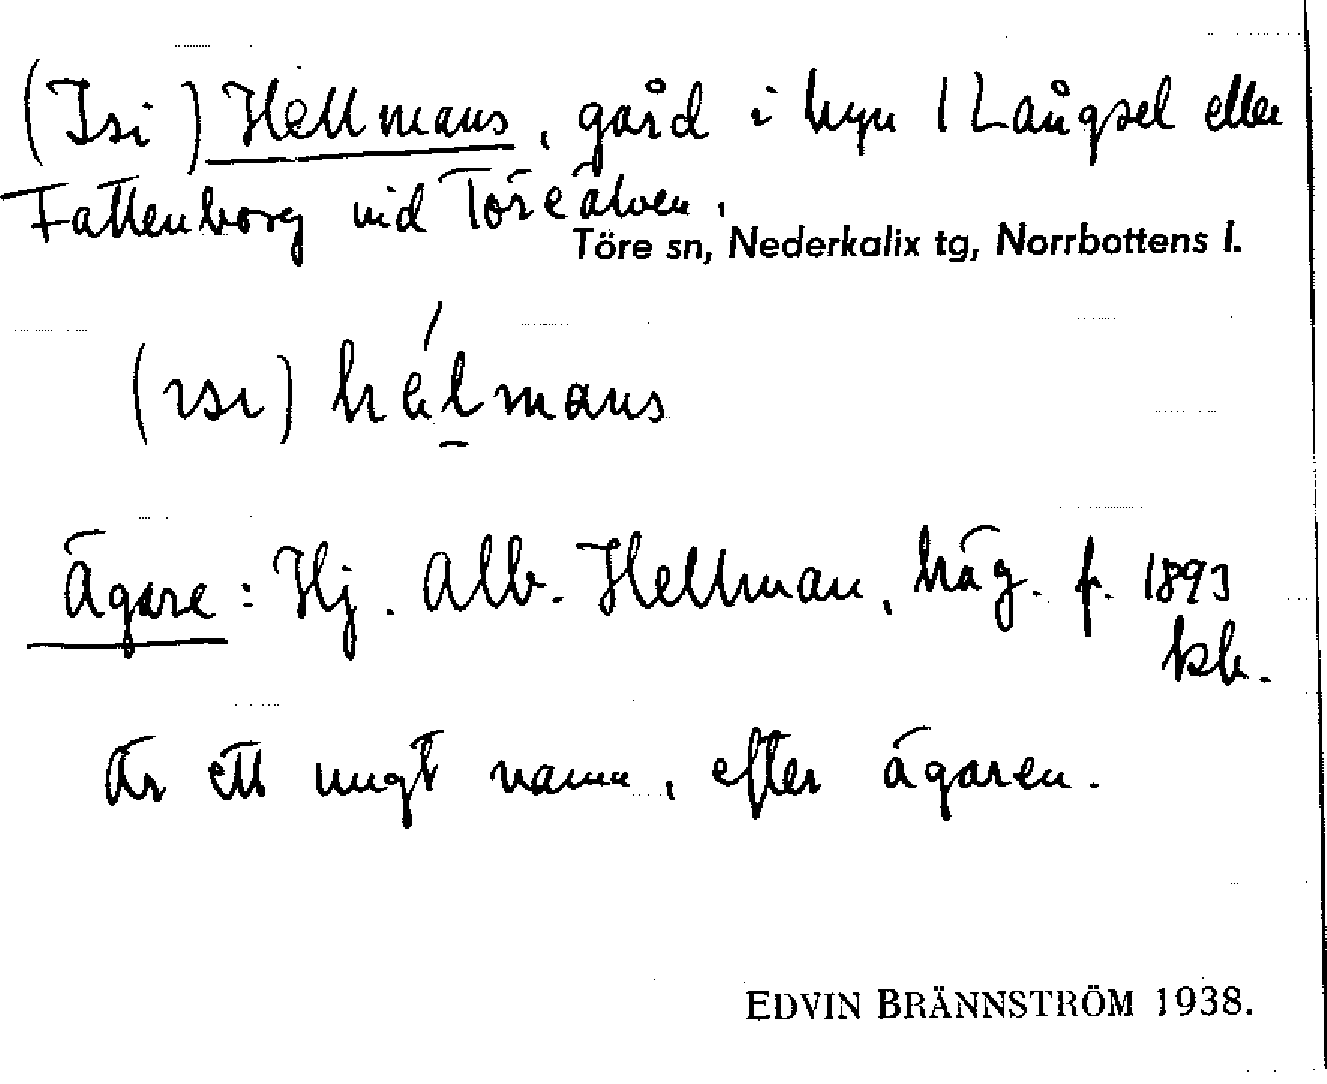 (Isi) Hellmans, gård i byn 1 Långsel eller
Fattenborg vid Töreälven.
Töre sn, Nederkalix tg, Norrbottens l.
(ısı) hélmans
Ägare: Hj. Alb. Hellman, häg. f. 1893
kb.
Är ett ungt namn, efter ägaren.
EDVIN BRÄNNSTRÖM 1938.